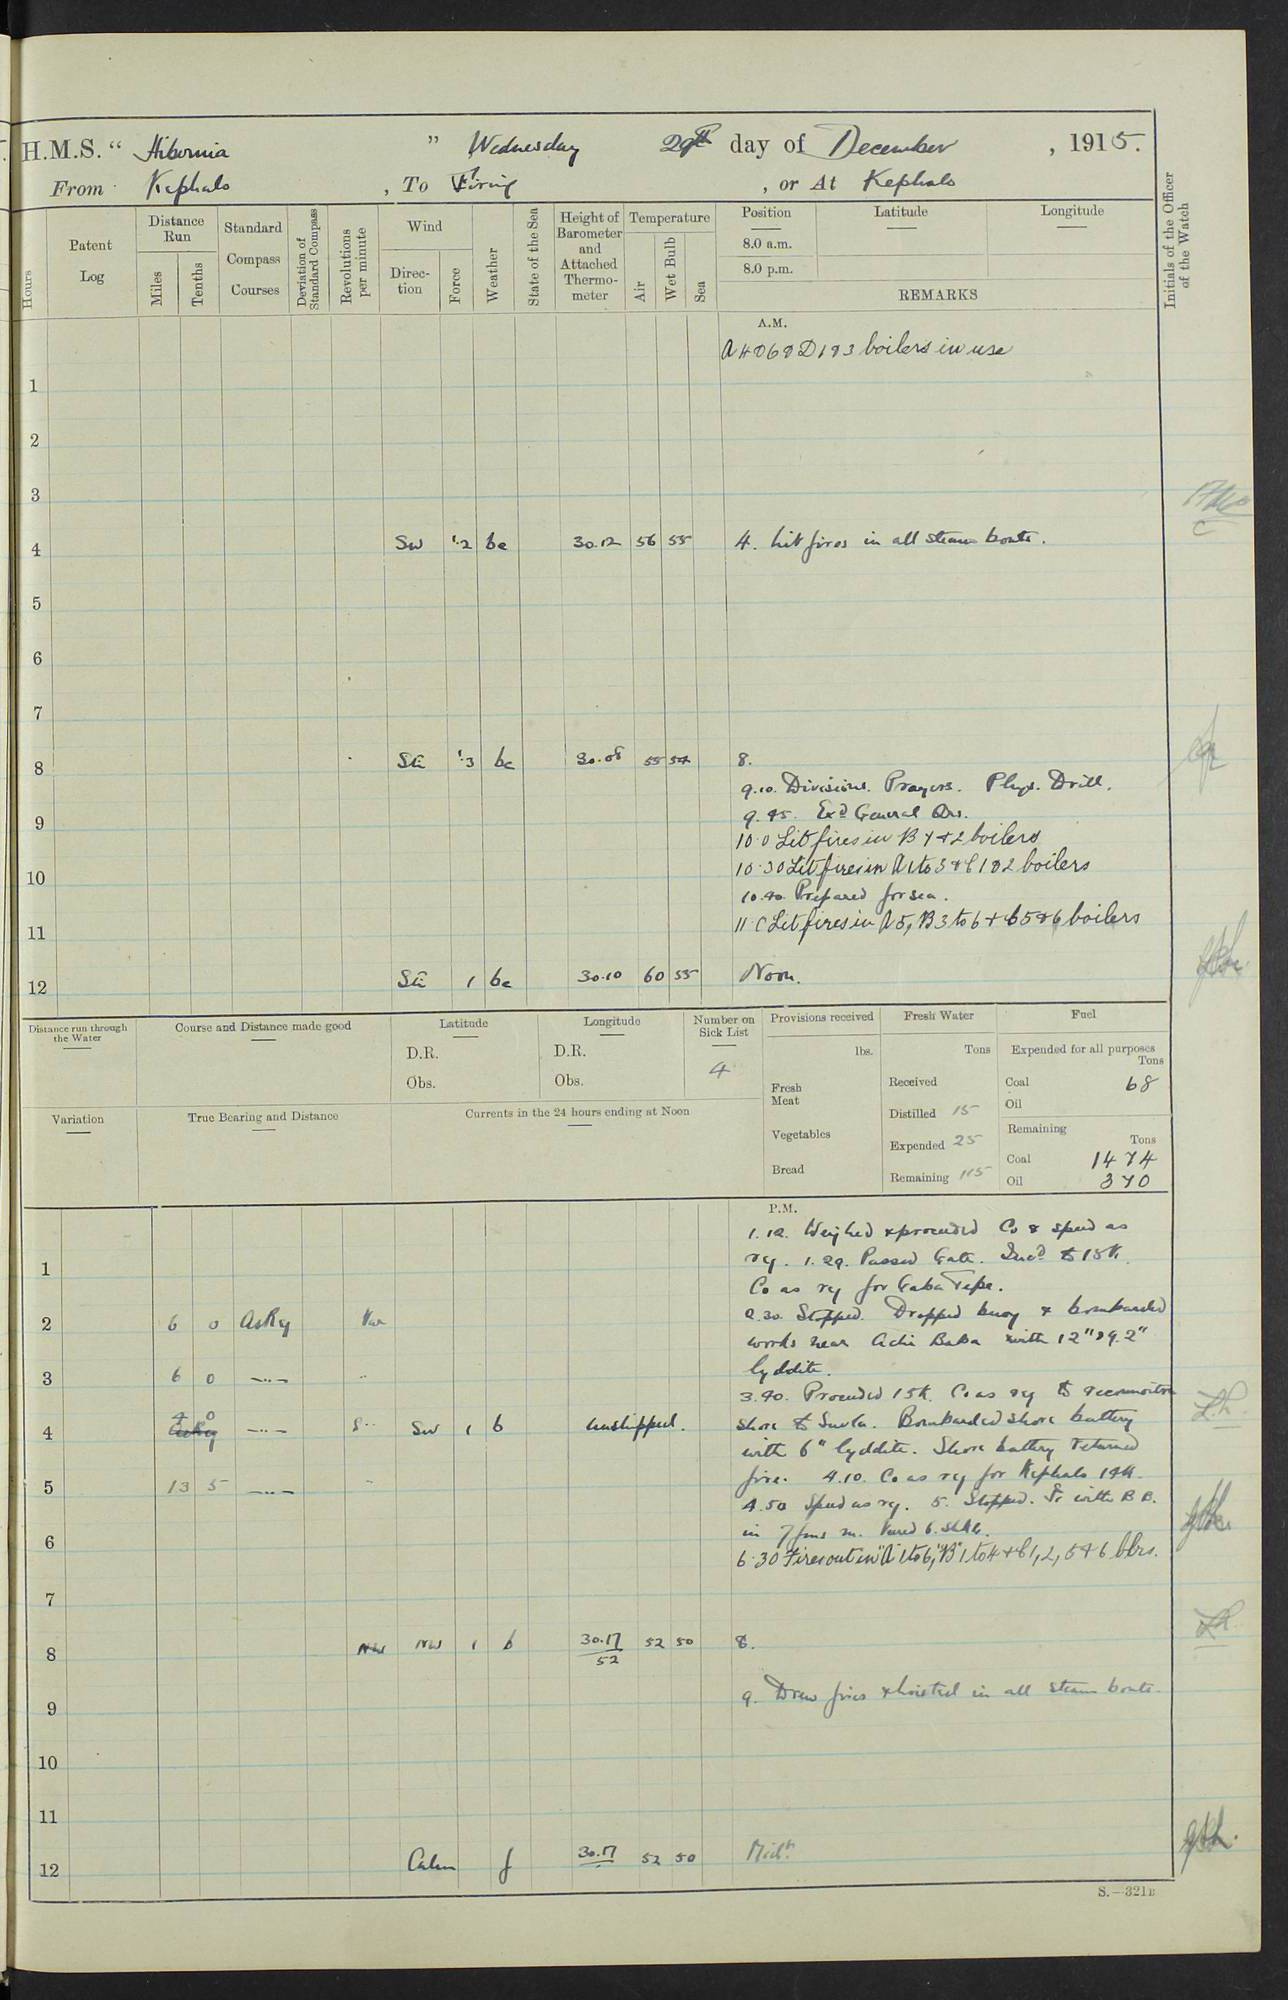 H.M.S. “ Hibernia ” Wednesday 29th day of December , 1915.
From Kephalo , To Firing , or At Kephalo
Hours
Patent Log
Distance Run
Miles
Tenths
Standard Compass Courses
Deviation of Standard Compass
Revolutions per minute
Wind
Direction
Force
Weather
State of the Sea
Height of Barometer and Attached Thermometer
Temperature
Air
Wet Bulb
Sea
Position
Latitude
Longitude
8.0 a.m.
8.0 p.m.
REMARKS
Initials of the Officer of the Watch
A.M.
boilers in use
1
2
3
4 SW 1.2 bc 30.12 56 55 4. Lit fires in all steam boats.
5
6
7
8 SE 1.3 bc 30.08 55 54 8.
9.10. Divisions. Prayers. Phys. Drill.
9 9.45. Exd General Qrs.
10.0 Lit fires in B 1 & 2 boilers
10 10.30 Lit fires in A 1 to 3 & C 1 & 2 boilers
10.40 Prepared for sea.
11 11.0 Lit fires in A 5, B 3 to 6 & C 5 & 6 boilers
12 SE 1 bc 30.10 60 55 Noon.
Distance run through the Water
Course and Distance made good
Latitude
D.R.
Obs.
Longitude
D.R.
Obs.
Number on Sick List
4
Provisions received
lbs.
Fresh Meat
Vegetables
Bread
Fresh Water
Tons
Received
Distilled 15
Expended 25
Remaining 115
Fuel
Expended for all purposes
Tons
Coal 68
Oil
Remaining
Tons
Coal 1474
Oil 370
Variation
True Bearing and Distance
Currents in the 24 hours ending at Noon
P.M.
1.12. Weighed & proceeded Co & speed as
1 rq. 1.29. Passed Gate. Incd to 15 K.
Co as rq for Gaba Tepe.
2 6 0 As Rq Var 2.30 Stopped. Dropped buoy & bombarded
works near Achi Baba with 12" & 9.2"
3 6 0 —..— lyddite.
3.40. Proceeded 15 K. Co as rq to reconnoitre
4 4 0 —..— SW 1 b unshipped. shore to Suvla. Bombarded shore battery
with 6" lyddite. Shore battery returned
5 13 5 —..— fire. 4.10. Co as rq for Kephalo 14 K.
4.50 Speed as rq. 5. Stopped. with B B.
6 in 7 fms m.
6.30 Fires out in "A" 1 to 6, "B" 1 to 4 & C 1, 2, 5 & 6 blrs.
7
8 NW NW 1 b 30.17 52 52 50 8.
9 9. Drew fires & hoisted in all steam boats.
10
11
12 Calm f 30.17 52 50 Midt.
S.—321B